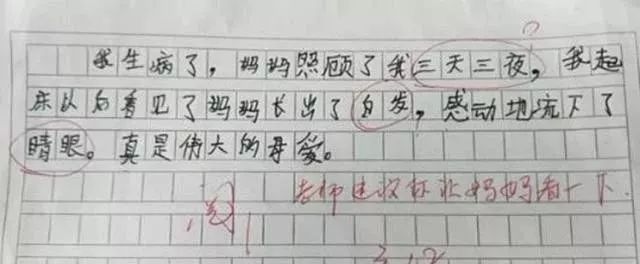 我生病了，妈妈照顾了我三天三夜，我起
床以后看见了妈妈长出了白发，感动地流下了
睛眼。真是伟大的母爱。
老师建议你让妈妈看一下